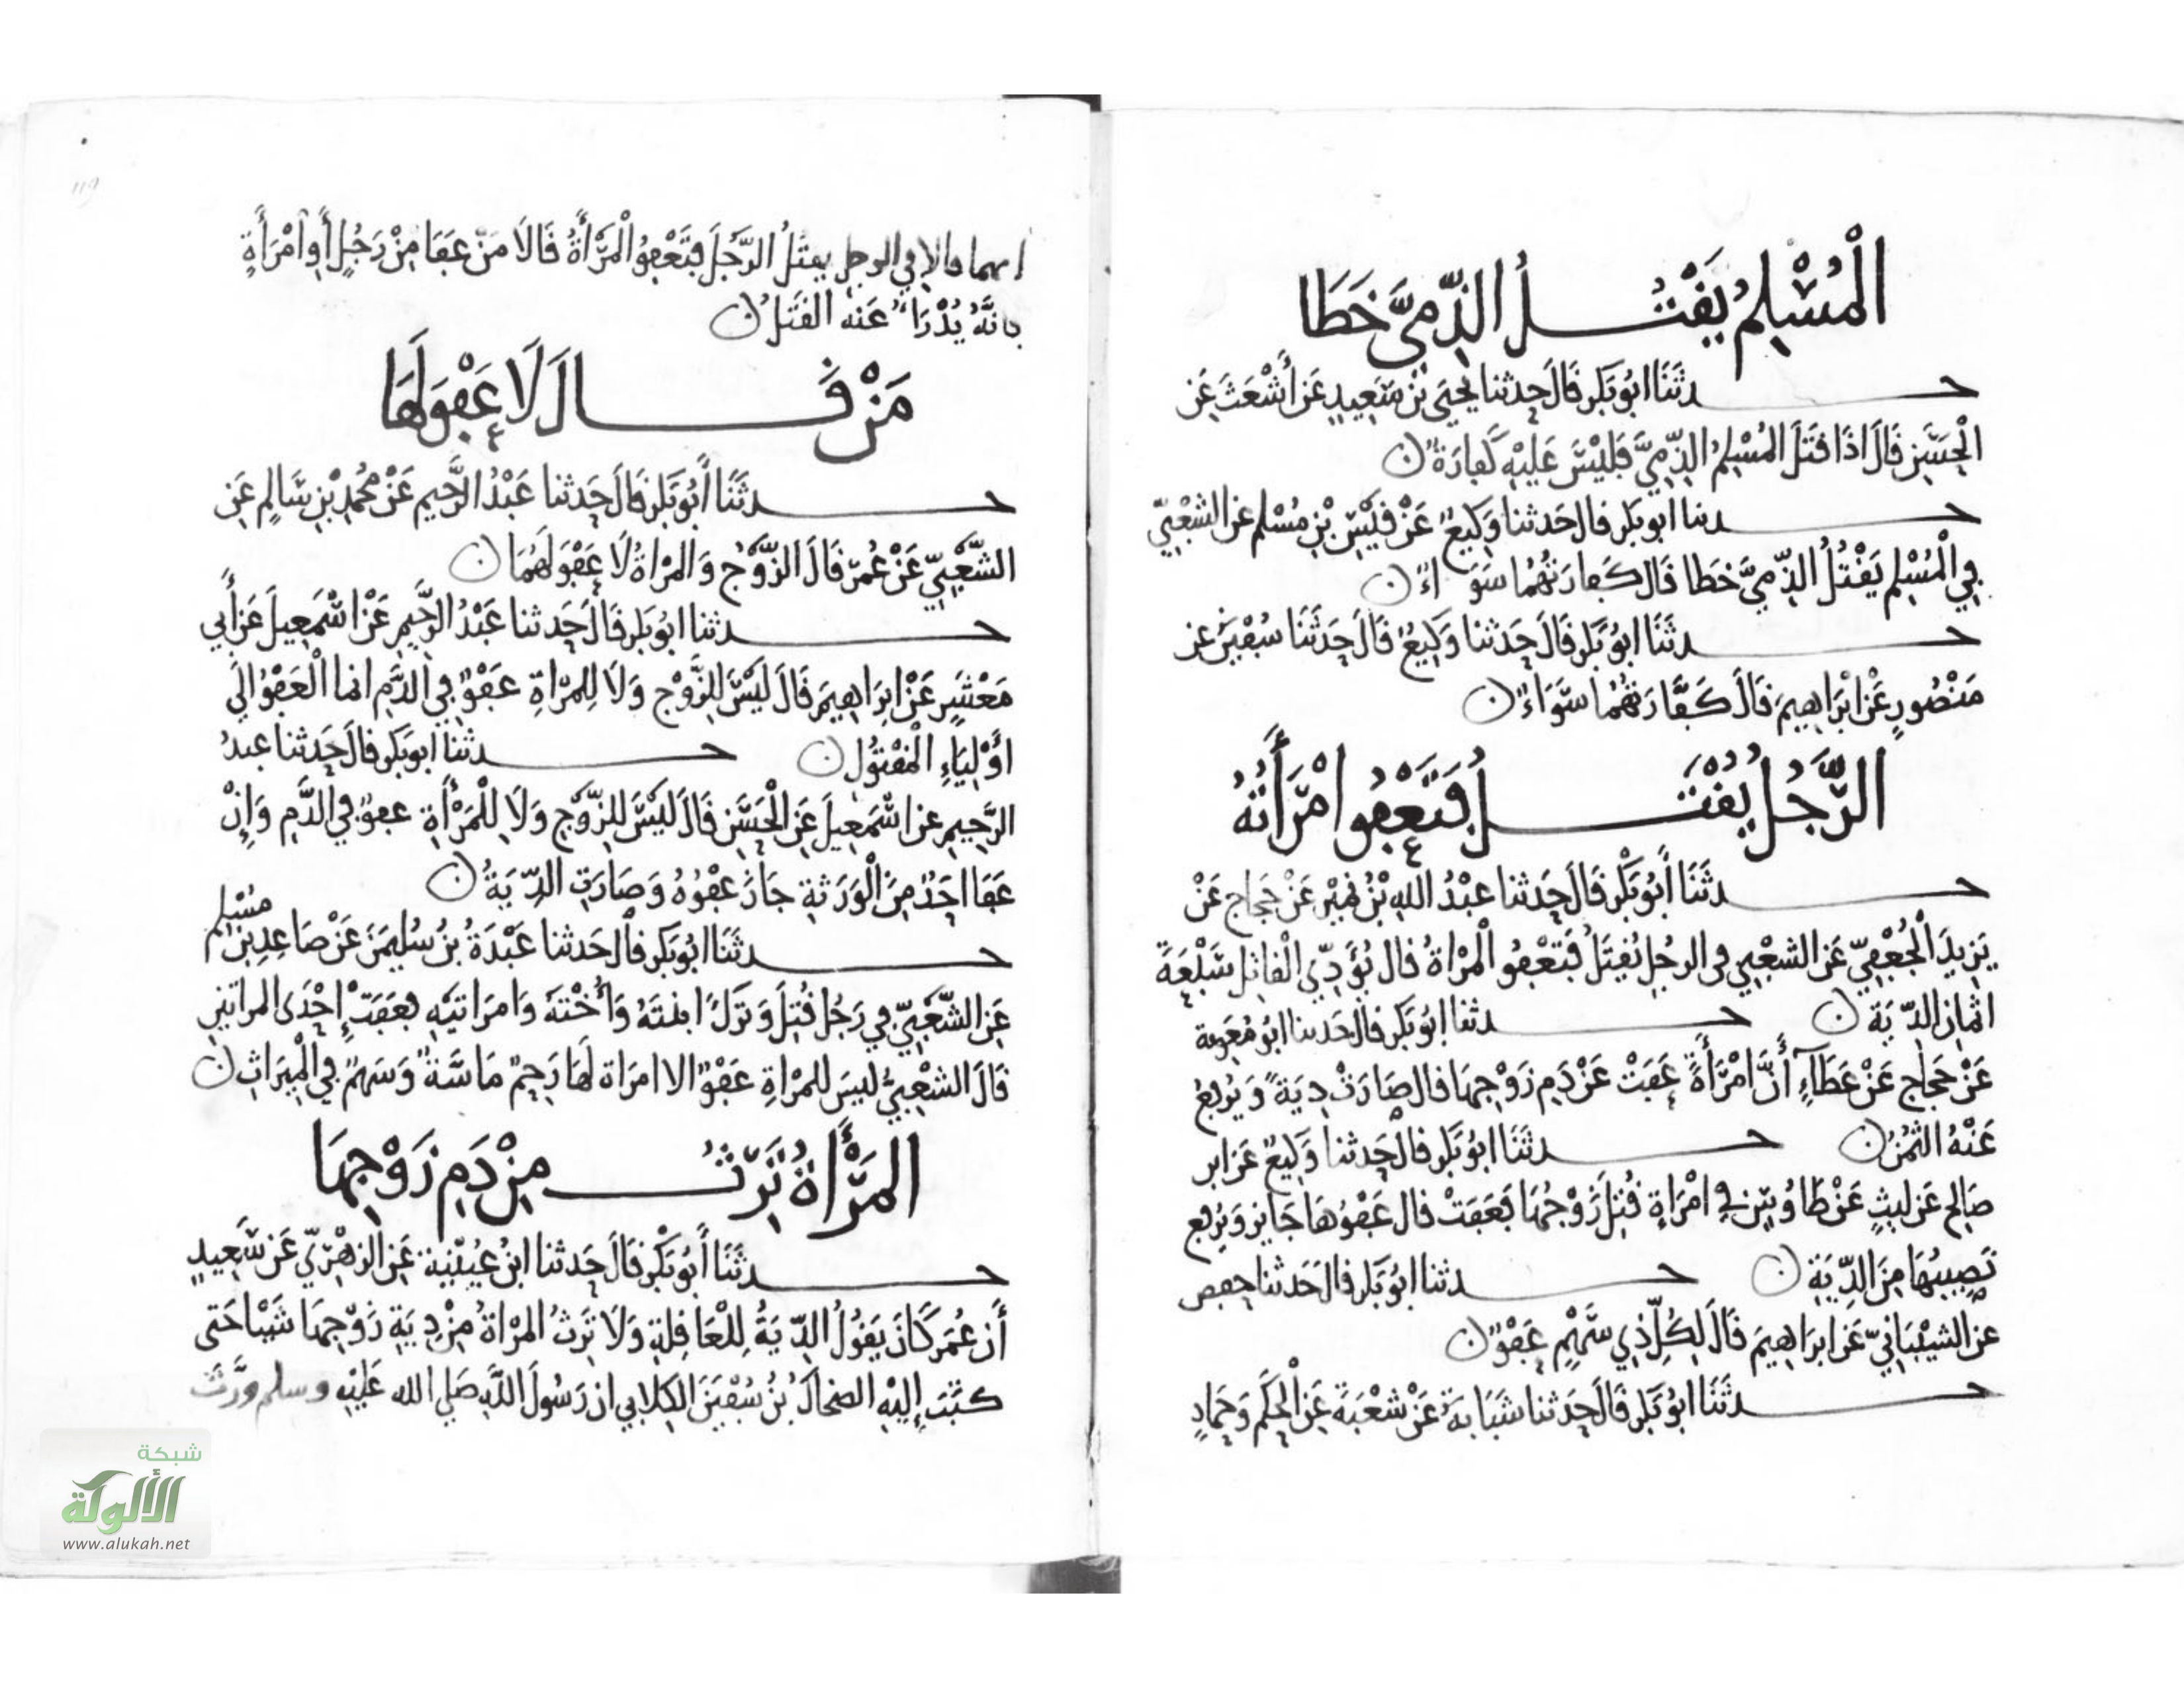 الْمُسْلِمُ يَقْتُلُ الذِّمِّيَّ خَطَا
حدثَنَا ابُو بَكر قَالَ حدثنا يحيَى بْن سَعِيدٍ عَن أَشْعَثَ عَن
الْحَسَنِ قَالَ اذَا قَتَلَ المُسْلِمُ الذِّمِيَّ فَلَيْسَ عَلَيْهِ كَفارَةٌ
حدثنا ابو بكر قال حَدثنا وَكِيعٌ عَنْ قَيْسِ بْنِ مُسْلم عن الشعْبِيّ
فِي الْمُسْلِم يَقْتُلُ الذِّمِيَّ خطَا قَال كَفارَتُهُما سَوَاءٌ
حدثَنَا ابُو بَكر قَالَ حَدثنا وَكِيعٌ قَالَ حَدثَنَا سُفْيَن عن
مَنْصُورٍ عَنْ ابْرَاهِيمَ قَالَ كَفَّارَتُهُمَا سَوَاءٌ
الرَّجُلُ يُقْتَلُ فَتَعْفُوا امْرَأَتُهُ
حدثَنَا أَبُو بَكْر قَالَ حَدثنا عَبْدُ اللهِ بْنُ نُمَيْرٍ عَنْ حَجاج عَنْ
يَزِيدَ الْجُعْفِيّ عَن الشعْبِي في الرجُلِ يُقتَلُ فَتَعْفُو الْمَرْاةُ قال يُؤَدِّي الْقاتل سَبْعَةَ
اثمان الدِّيَة حدثنا ابُو بَكر قال حَدثنا ابُو مُعَوِية
عَنْ حَجاج عَنْ عَطَآءٍ أَنَّ امْرَأَةً عَفَتْ عَنْ دَمِ زَوْجِهَا قال صَارَتْ دِيَةً وَيُرفعُ
عَنْهُ الثمُنُ حدثَنَا ابُو بَكر قال حَدثنا وَكِيعٌ عَن ابن
صَالِح عَن لَيثٍ عَنْ طَاوُسٍ في امْرَاةٍ قُتِلَ زَوْجُهَا فَعَفَتْ قال عَفْوُهَا جَايز وَيُرفع
نَصِيبُهَا مِنَ الدِّيَةِ حدثنا ابُو بَكر قال حَدثنا حفص
عن الشيْبَانِيّ عَن ابرَاهِيمَ قَالَ لِكُلِّ ذِي سَهْمٍ عَفْوٌ
حدثَنَا ابُو بَكر قَالَ حَدثنا شَبَابَةُ عَنْ شعْبَةَ عَنِ الْحكَم وَحَمادٍ
انهما قالا في الرجل يقتُلُ الرَّجُلَ فتَعْفُو الْمَرْأَةُ قَالا مَنْ عَفَا مِنْ رَجُلٍ أَوِ امْرَأَةٍ
فانَّهُ يُدْرَاُ عَنه القَتلُ
مَنْ قَالَ لَا عَفْوَ لَهَا
حدثَنَا أَبُو بَكر قَالَ حَدثنا عَبْدُ الرَّحِيم عَنْ مُحَمدِ بْنِ سَالِمٍ عَنِ
الشَّعْبِيّ عَنْ عُمَرَ قَالَ الزَّوْجُ وَالمرْاةُ لَا عَفْوَ لَهُمَا
حدثنا ابُو بَكر قَالَ حَدثنا عَبْدُ الرَّحِيمِ عَنْ اسْمَعِيلَ عَن أَبي
مَعْشَرٍ عَنْ ابرَاهِيمَ قَالَ لَيْسَ لِلزَّوْجِ وَلَا لِلمرْاةِ عَفْوٌ فِي الدَّمِ انما الْعَفْوُ الَي
اوْلِيَاءِ الْمَقْتُولِ حدثنا ابو بَكر قال حَدثنا عبدُ
الرَّحِيمِ عن اسْمَعِيلَ عَنِ الْحَسَن قَالَ لَيْسَ لِلزَّوْجِ وَلَا لِلْمَرْأَةِ عفوٌ في الدَّم وَإِنْ
عَفَا احَدٌ مِنَ الْوَرَثةِ جَازَ عَفْوُهُ وَصَارَتِ الدِّيَةُ
حدثَنَا ابُو بَكر قال حَدثنا عَبْدَةُ بْنُ سُلَيمَنَ عَنْ صَاعِدِ بْنِ مُسْلِم
عَنِ الشَّعْبِيّ فِي رَجُل قُتِلَ وَتَرَكَ ابنتَهُ وَأُخْتَهُ وَامرَاتَيْهِ فعَفَتْ إِحْدَى المراتين
قَالَ الشعْبِيُّ ليسَ للمرْاةِ عَفْوٌ الا امرَاة لَهَا رَحِمٌ مَاسَّةٌ وَسَهمٌ فِي الْمِيرَاثِ
المَرْأَةُ تَرِثُ مِنْ دَمِ زَوْجِهَا
حدثَنَا أَبُو بَكْر قَالَ حَدثنا ابنُ عُيَيْنة عَنِ الزهْرِيّ عَن سَعِيدٍ
أَن عُمَرَ كَانَ يَقُولُ الدِّيَةُ لِلْعَاقِلَةِ وَلَا تَرِثُ المرْاةُ مِنْ دِيَةِ زَوْجِهَا شَيْئا حَتى
كتَبَ إِلَيْهِ الضحاكُ بْنُ سُفْيَنَ الكِلابي ان رَسُولَ اللَّهِ صَلي الله عَلَيْهِ وسلم وَرَّثَ
شبكة
الألوكة
www.alukah.net